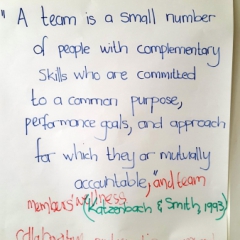 " A team is a small number
of people with complementary
skills who are committed
to a common purpose,
performance goals, and approach
for which they or mutually
accountable," and team
members' wellness
(Katzenbach & Smith, 1993)